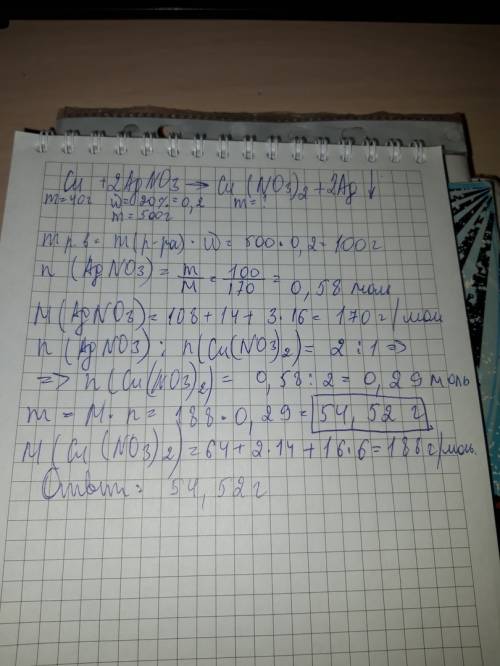 Cu + 2AgNO3 → Cu(NO3)2 + 2Ag↓
m=40г ω=20%=0,2 m=?
m=500г
m р.в.= m(р-ра)·ω = 500·0,2=100г
n (AgNO3) = m/M = 100/170 = 0,58 моль
M(AgNO3)= 108+14+3·16= 170г/моль
n(AgNO3) : n(Cu(NO3)2)= 2:1 =>
=> n(Cu(NO3)2)= 0,58:2=0,29 моль
m = M·n = 188·0,29= 54,52 г
M(Cu(NO3)2)=64+2·14+16·6=188г/моль.
Ответ: 54,52г